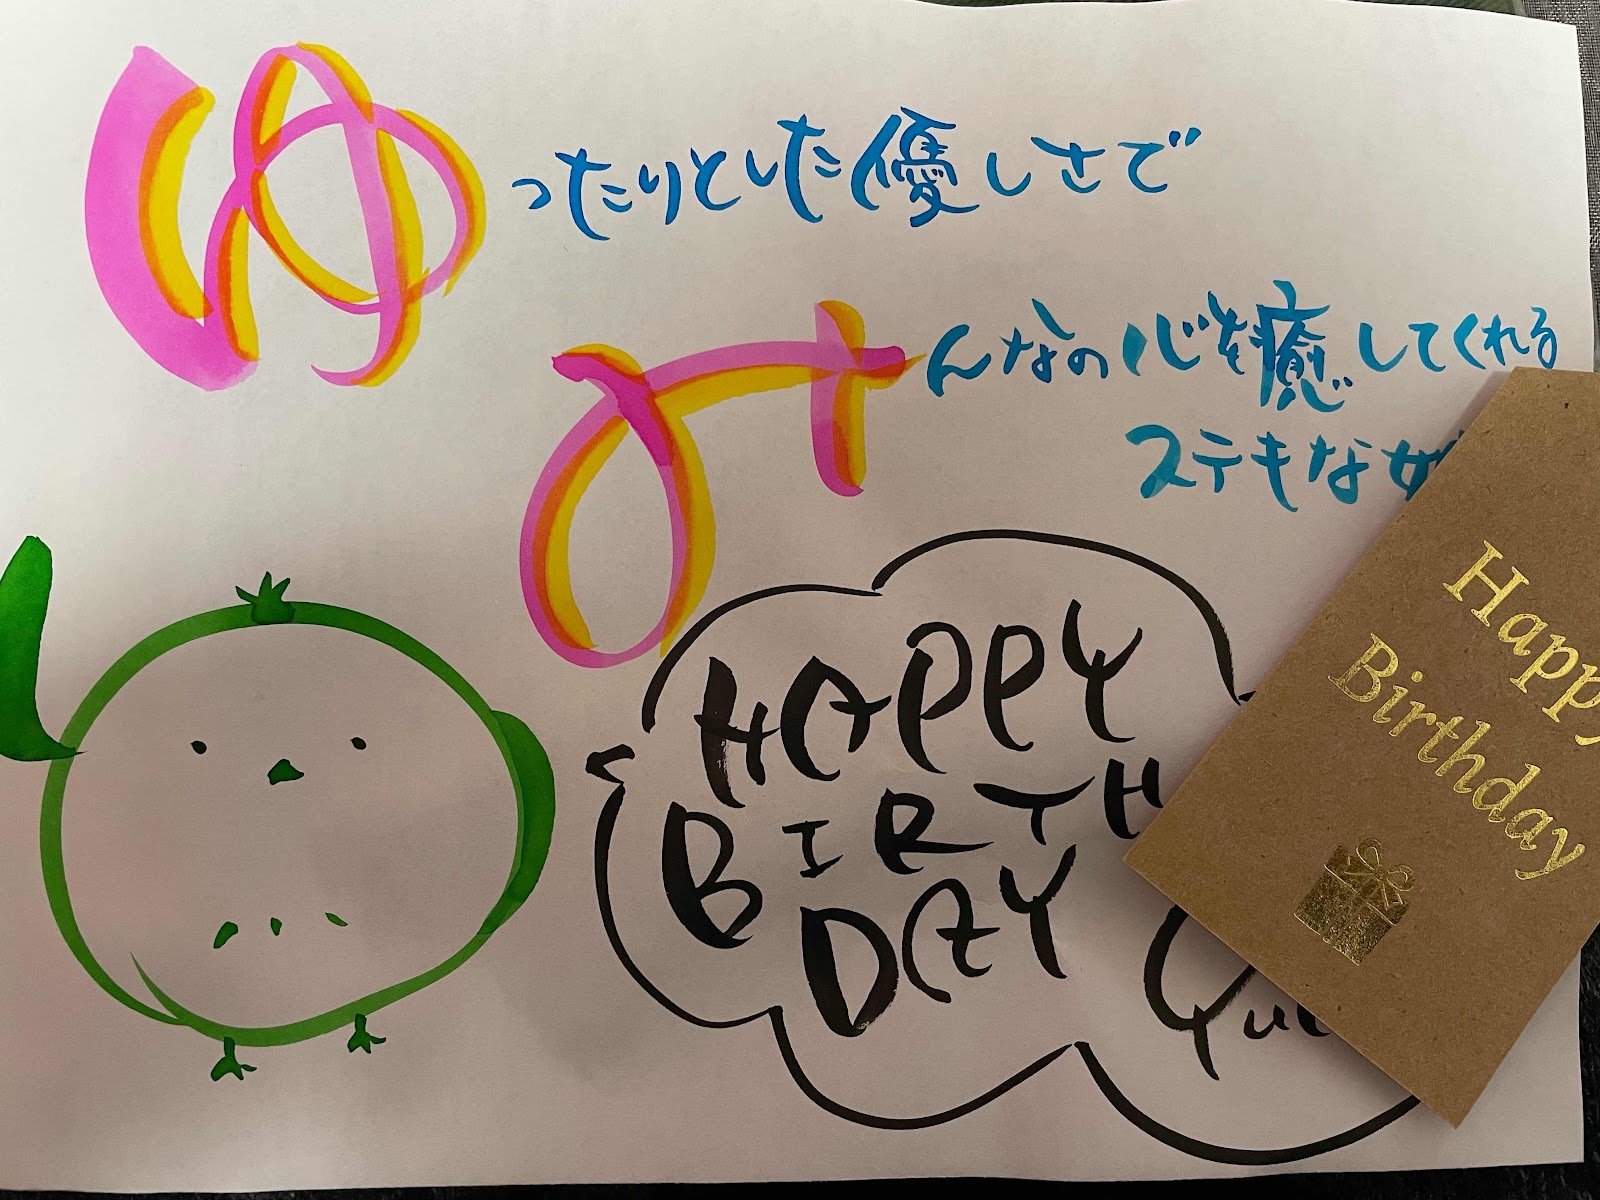 ゆったりとした優しさで
みんなの心を癒してくれる
ステキな
HAPPY
BIRTH
DAY
Happy
Birthday